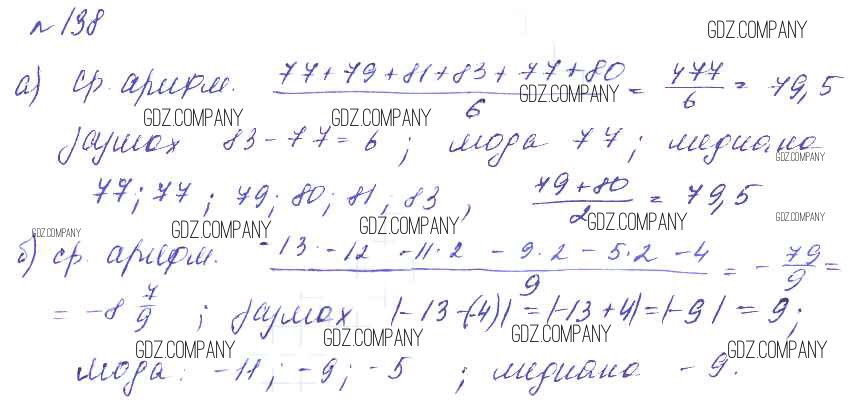 № 138
GDZ.COMPANY
а) ср. арифм. (77+79+81+83+77+80)/6 = 477/6 = 79,5
GDZ.COMPANY GDZ.COMPANY GDZ.COMPANY
размах 83-77=6; мода 77; медиана
GDZ.COMPANY
77; 77; 79; 80; 81; 83, (79+80)/2 = 79,5
GDZ.COMPANY GDZ.COMPANY GDZ.COMPANY GDZ.COMPANY GDZ.COMPANY
б) ср. арифм. (-13 · -12 -11·2 - 9·2 - 5·2 - 4)/9 = - 79/9 =
= -8 7/9; размах |-13-(-4)| = |-13+4| = |-9| = 9;
GDZ.COMPANY GDZ.COMPANY GDZ.COMPANY GDZ.COMPANY
мода: -11; -9; -5; медиана -9.